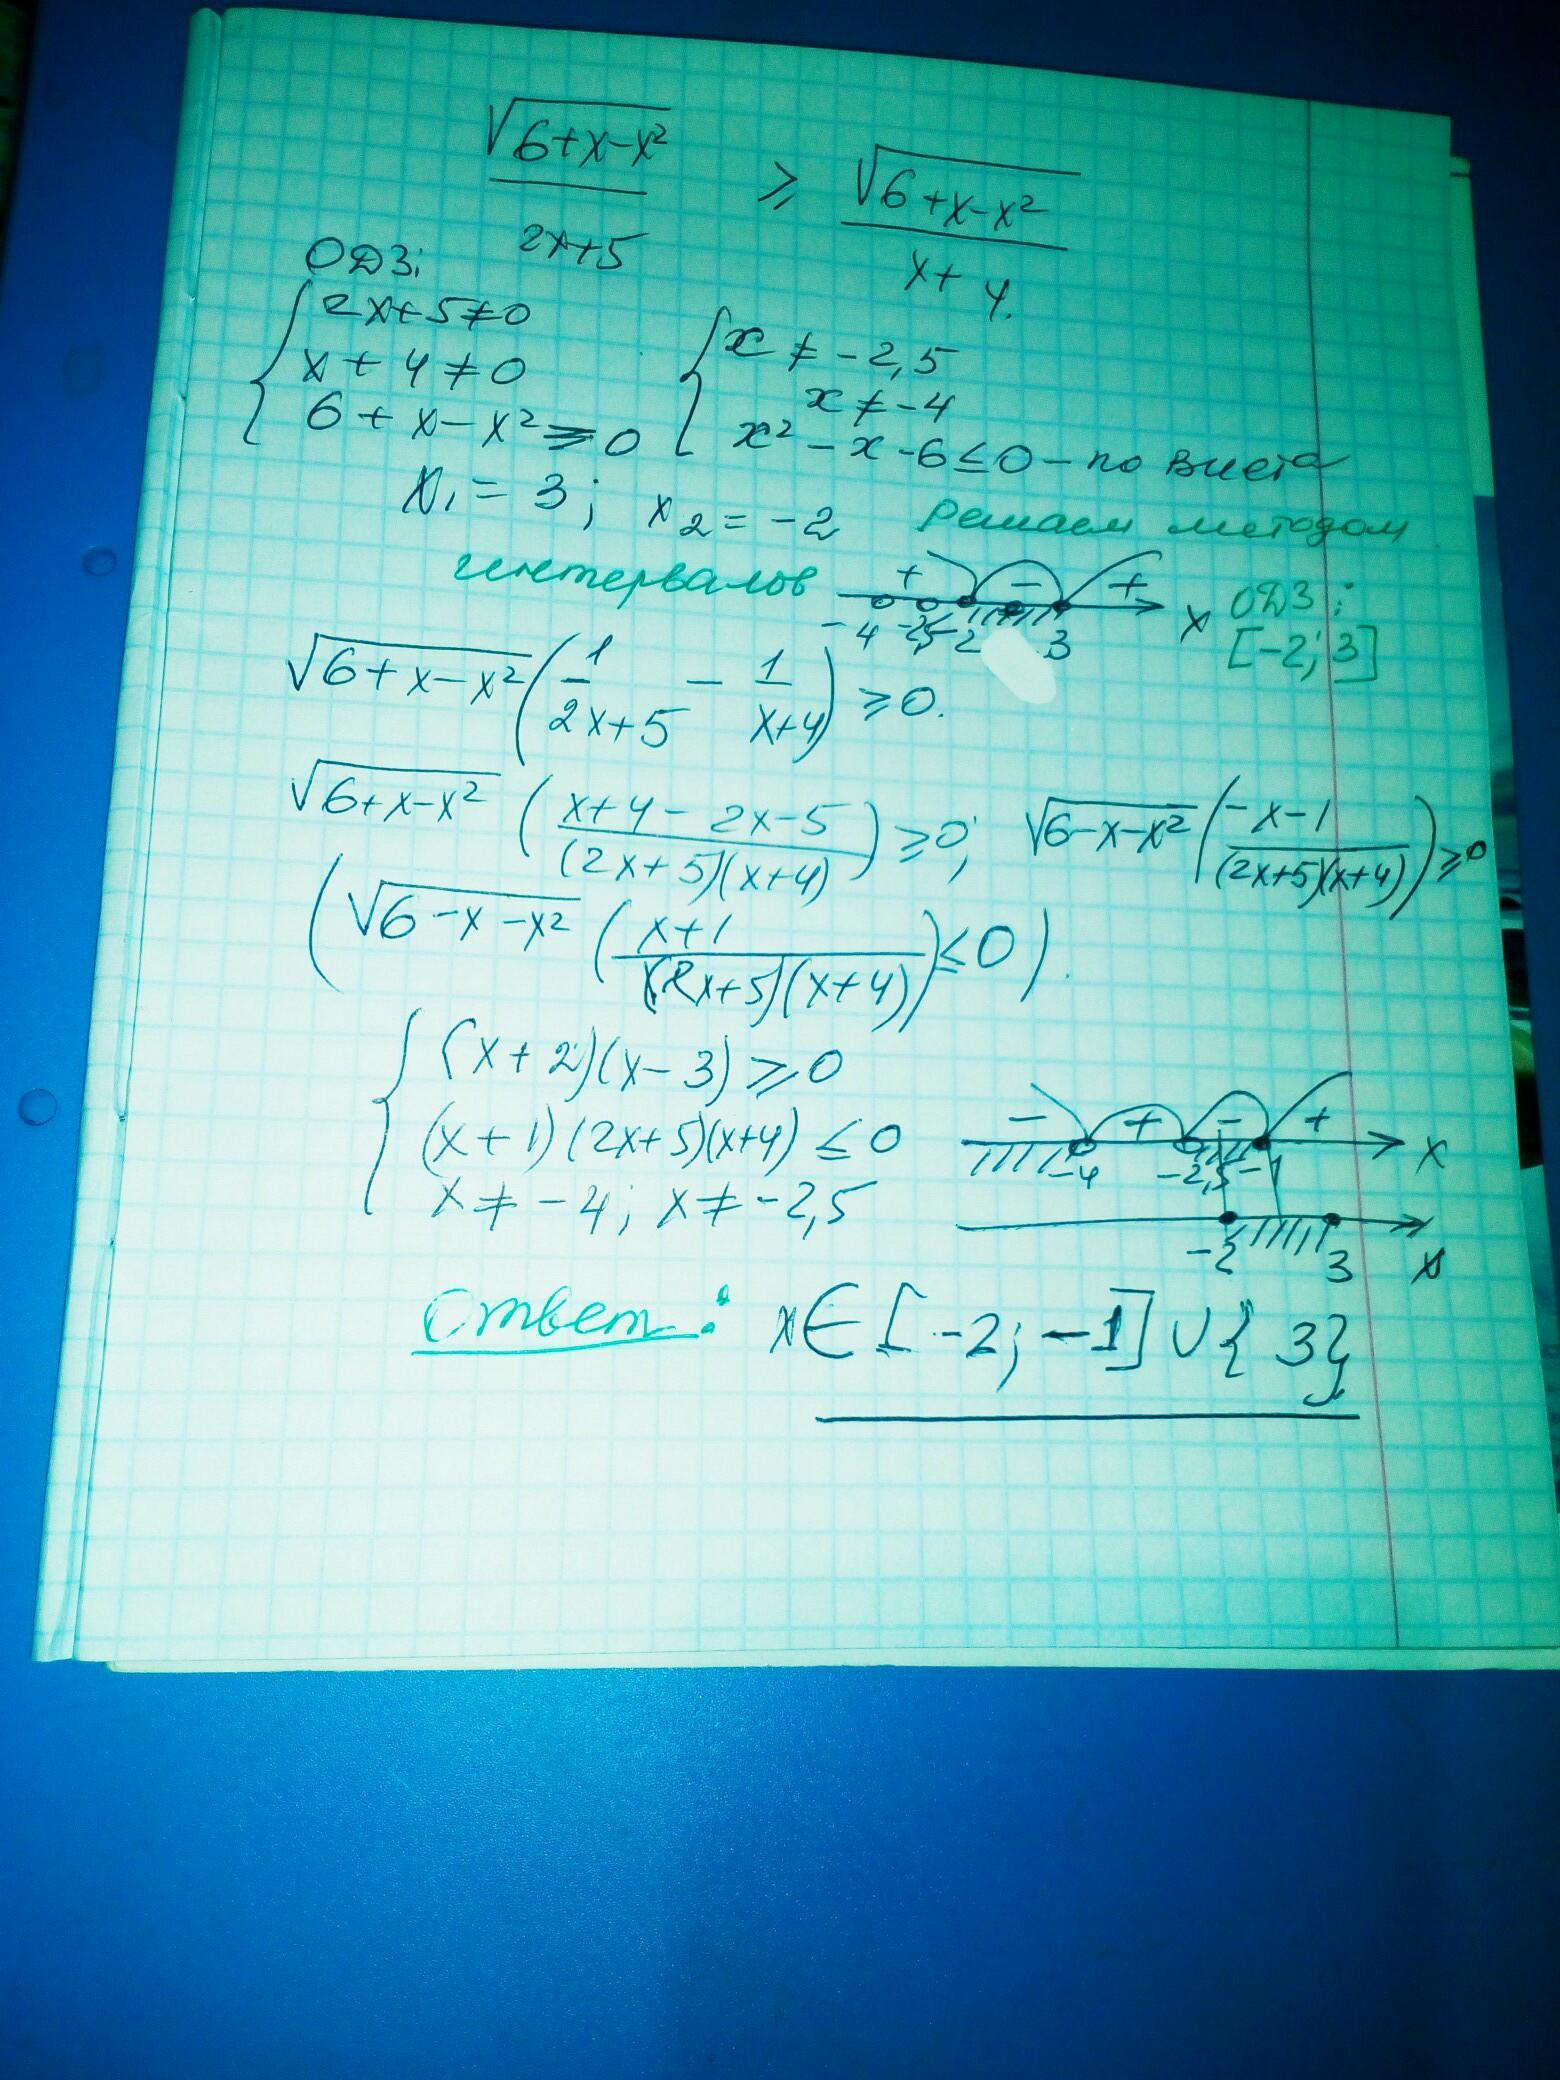 √(6+x-x²)/(2x+5) ⩾ √(6+x-x²)/(x+4).
ОДЗ:
{ 2x+5≠0 { x≠-2,5
x+4≠0 x≠-4
6+x-x²⩾0 x²-x-6≤0 - по Виета
x₁=3; x₂=-2 Решаем методом
интервалов + - + x ОДЗ:
-4 -2,5 -2 3 [-2;3]
√(6+x-x²) (1/(2x+5) - 1/(x+4)) ⩾0.
√(6+x-x²) ((x+4-2x-5)/((2x+5)(x+4))) ⩾0; √(6-x-x²) ((-x-1)/((2x+5)(x+4))) ⩾0
(√(6-x-x²) ((x+1)/((2x+5)(x+4))) ≤0).
{ (x+2)(x-3)⩾0
(x+1)(2x+5)(x+4)≤0 - + - + x
x≠-4; x≠-2,5 -4 -2,5 -1
-2 3 x
Ответ: x∈[-2;-1]∪{3}